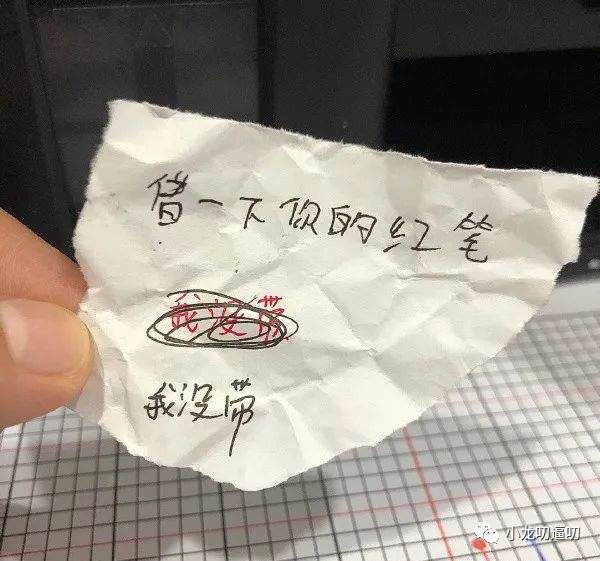 借一下你的红笔
我没带
我没带
小龙叨逼叨